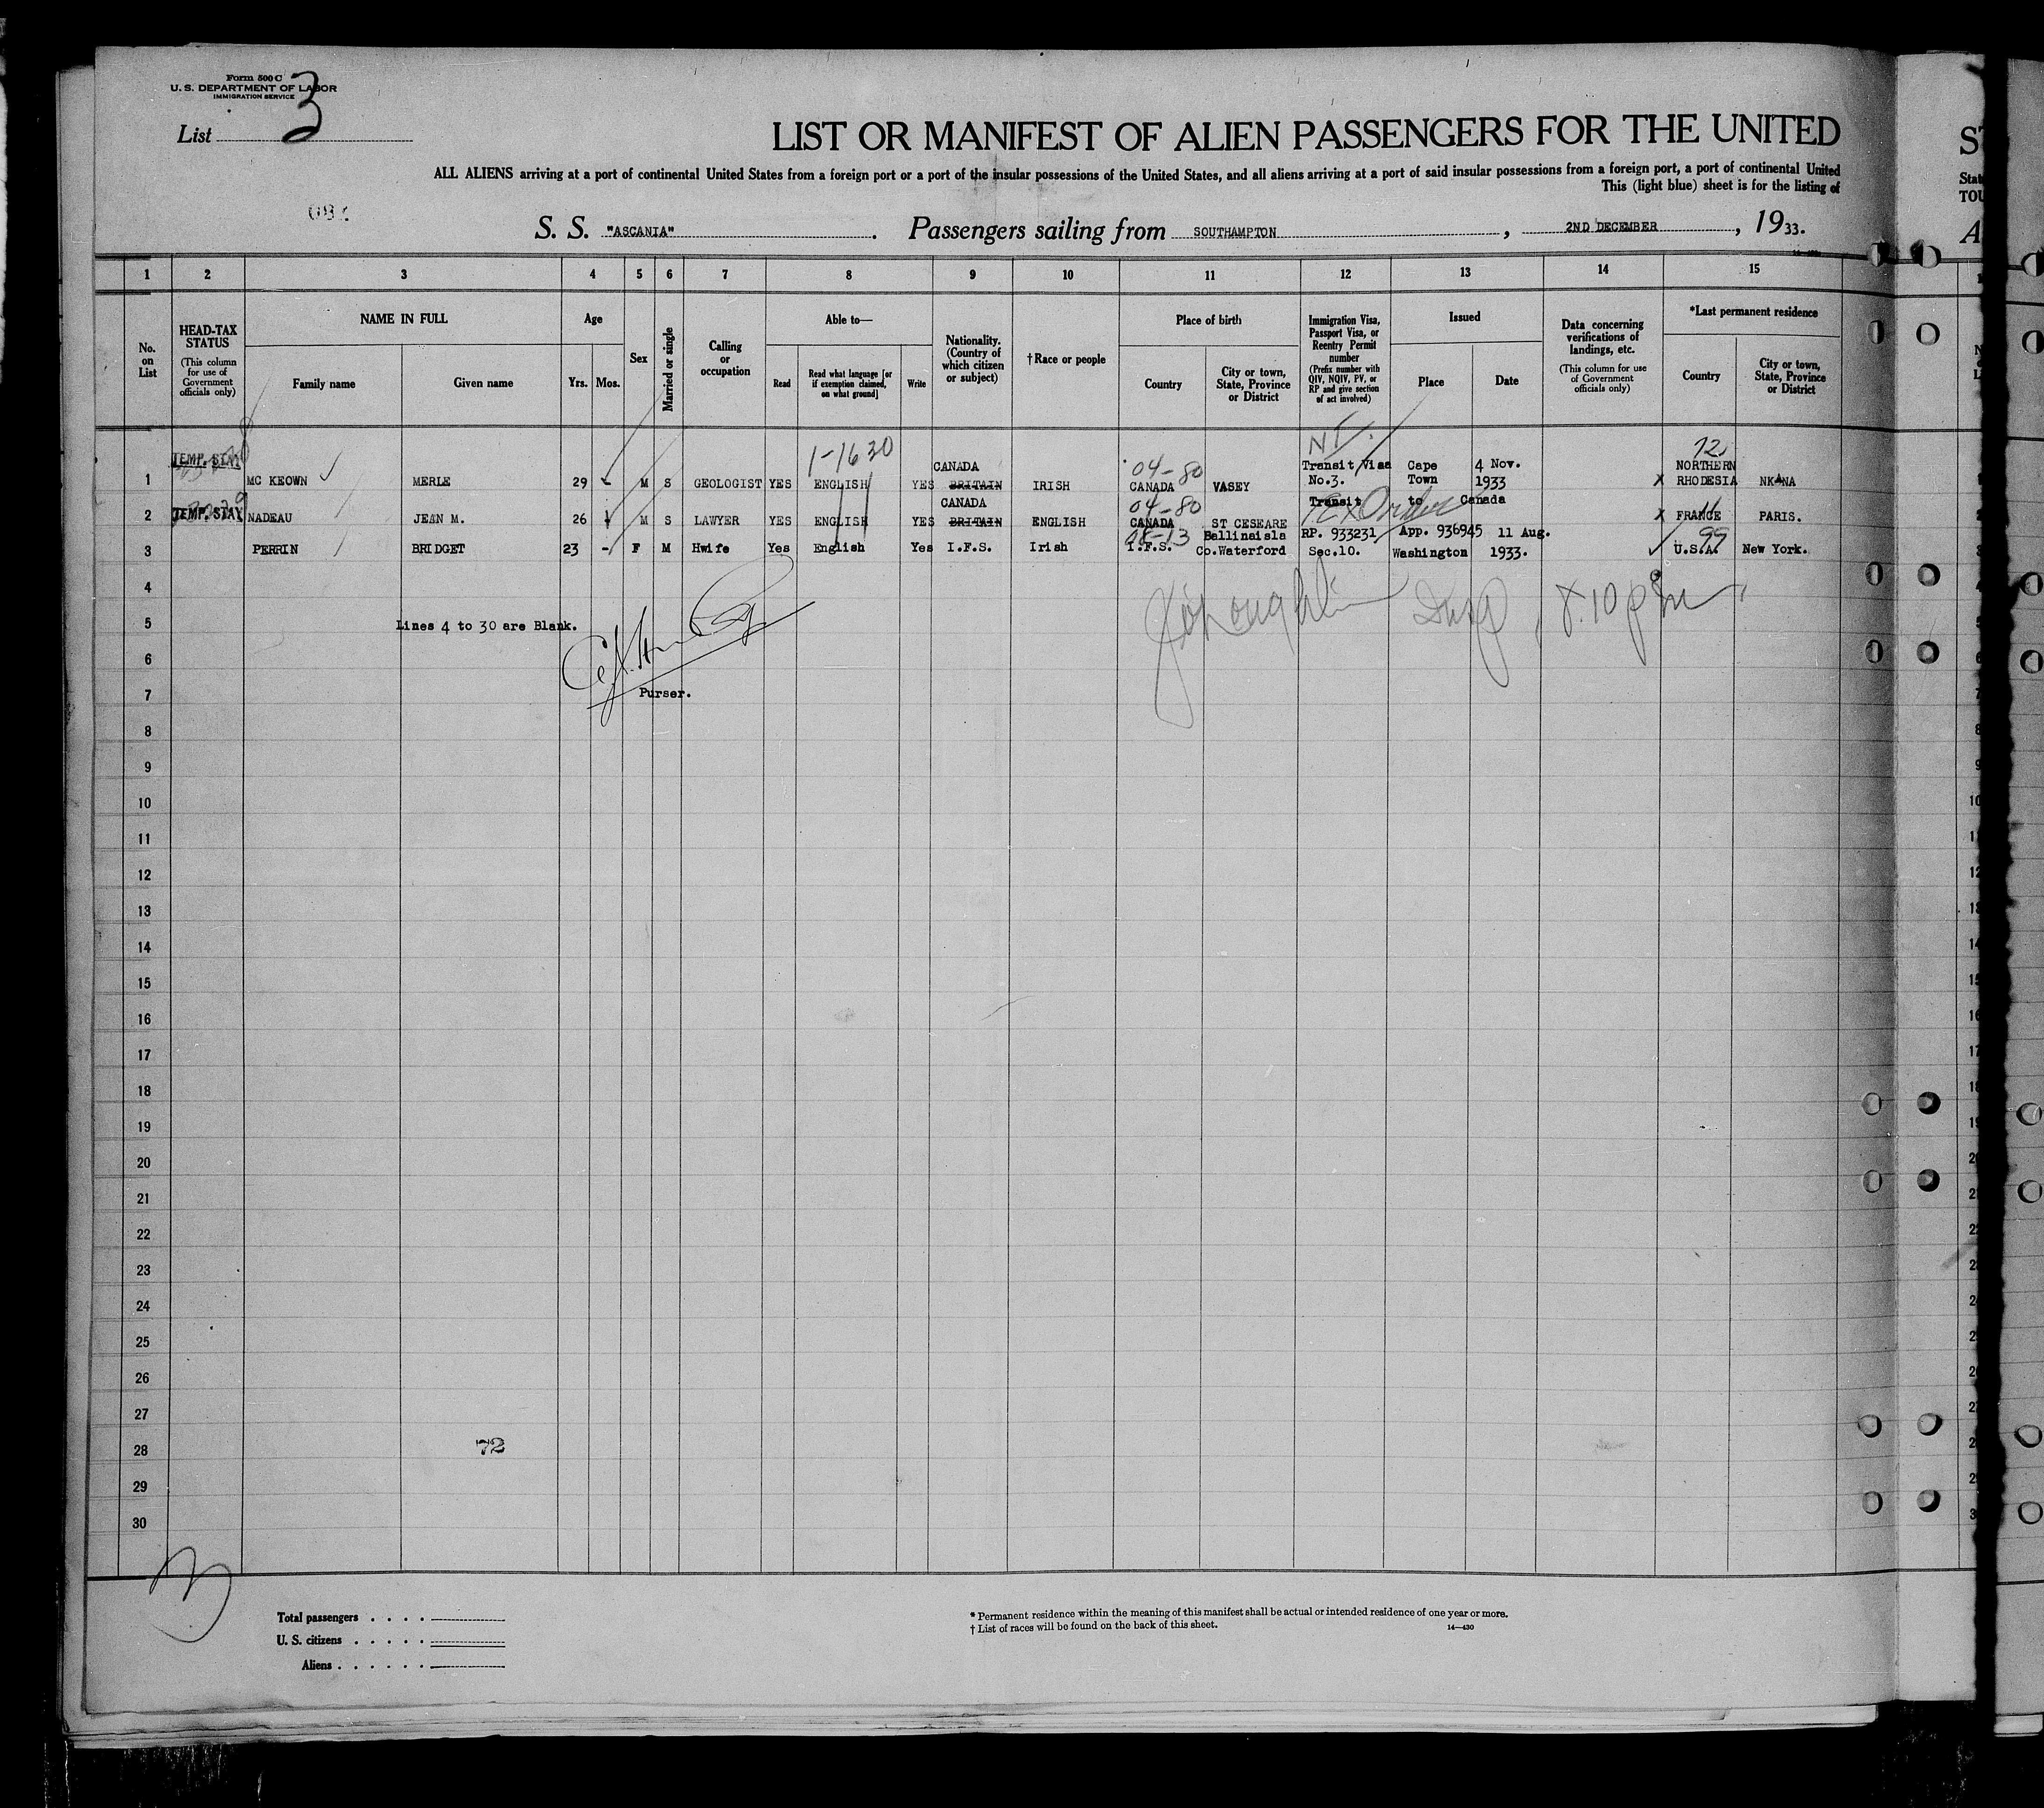 Form 500 C
U. S. DEPARTMENT OF LABOR
IMMIGRATION SERVICE
List 3
LIST OR MANIFEST OF ALIEN PASSENGERS FOR THE UNITED
ALL ALIENS arriving at a port of continental United States from a foreign port or a port of the insular possessions of the United States, and all aliens arriving at a port of said insular possessions from a foreign port, a port of continental United
This (light blue) sheet is for the listing of
S. S. "ASCANIA". Passengers sailing from SOUTHAMPTON, 2ND DECEMBER, 1933.
1 2 3 4 5 6 7 8 9 10 11 12 13 14 15
No. on List
HEAD-TAX STATUS (This column for use of Government officials only)
NAME IN FULL
Family name
Given name
Age
Yrs.
Mos.
Sex
Married or single
Calling or occupation
Able to—
Read
Read what language [or if exemption claimed, on what ground]
Write
Nationality. (Country of which citizen or subject)
†Race or people
Place of birth
Country
City or town, State, Province or District
Immigration Visa, Passport Visa, or Reentry Permit number (Prefix number with QIV, NQIV, PV, or RP and give section of act involved)
Issued
Place
Date
Data concerning verifications of landings, etc. (This column for use of Government officials only)
*Last permanent residence
Country
City or town, State, Province or District
1-1630
TEMP. STAY CANADA 04-80 Transit Visa Cape 4 Nov. 12 NORTHERN
1 MC KEOWN MERLE 29 M S GEOLOGIST YES ENGLISH YES BRITAIN IRISH CANADA VASEY No.3. Town 1933 X RHODESIA NKANA
TEMP. STAY CANADA 04-80 Transit to Canada
2 NADEAU JEAN M. 26 M S LAWYER YES ENGLISH YES BRITAIN ENGLISH CANADA ST CESEARE X FRANCE PARIS.
08-13 Ballinaisla RP. 933231 App. 936945 11 Aug. 99
3 PERRIN BRIDGET 23 - F M Hwife Yes English Yes I.F.S. Irish I.F.S. Co.Waterford Sec.10. Washington 1933. U.S.A. New York.
4
5 Lines 4 to 30 are Blank.
6
7 Purser.
8
9
10
11
12
13
14
15
16
17
18
19
20
21
22
23
24
25
26
27
28 72
29
30
8.10 pm
Total passengers
U. S. citizens
Aliens
* Permanent residence within the meaning of this manifest shall be actual or intended residence of one year or more.
† List of races will be found on the back of this sheet.
14—430